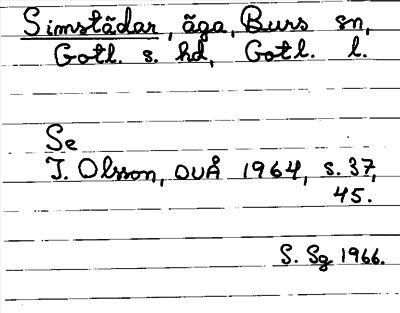 Simstãdar, ãga, Burs sn,
Gotl. s. hd, Gotl. l.
Se
I. Olsson, OUÅ 1964, s. 37,
45.
S. Sg 1966.